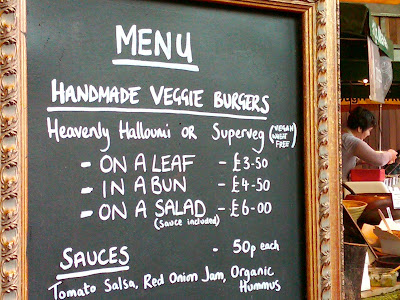 MENU
HANDMADE VEGGIE BURGERS
Heavenly Halloumi OR Superveg (VEGAN WHEAT FREE)
- ON A LEAF - £3-50
- IN A BUN - £4-50
- ON A SALAD - £6-00
(Sauce included)
SAUCES - 50p each
Tomato Salsa, Red Onion Jam, Organic
Hummus